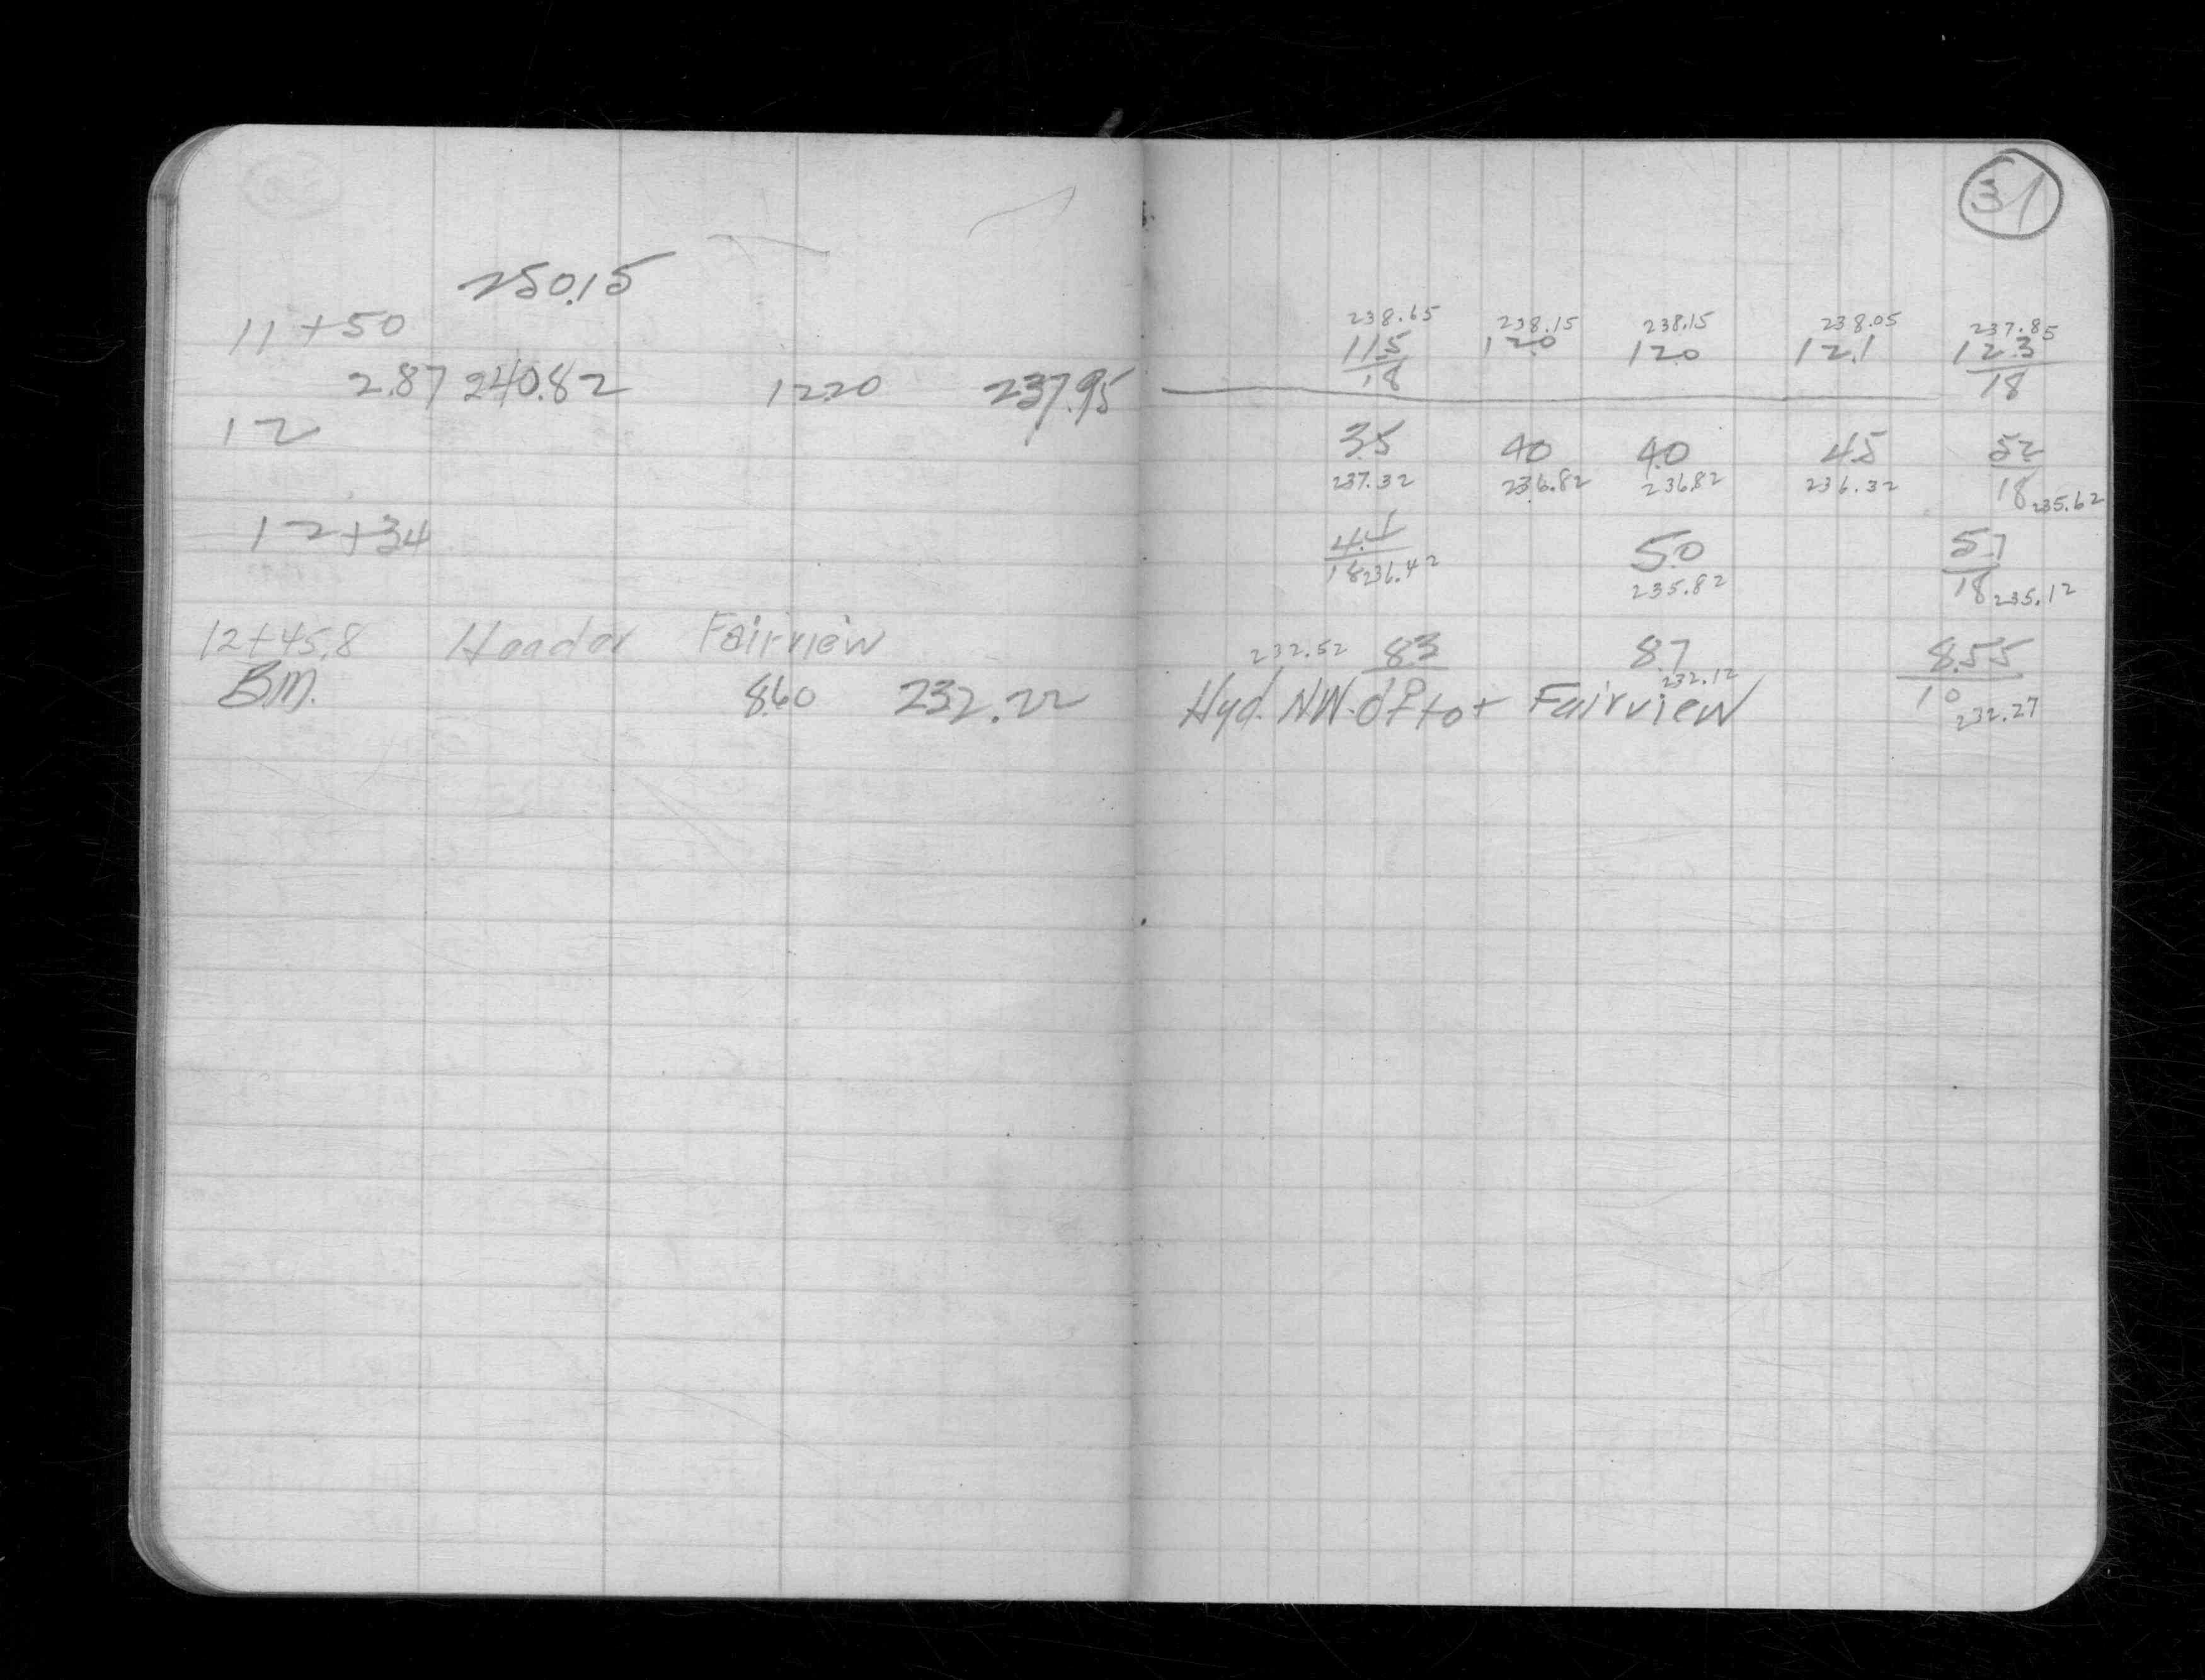 31
250.15
11+50 238.65 238.15 238.15 238.05 237.85
11.5 12.0 12.0 12.1 12.3
18 18
2.87 240.82 12.20 237.95
12 3.5 4.0 4.0 4.5 5.2
237.32 236.82 236.82 236.32 18 235.62
12+34 4.4 5.0 5.7
18 236.42 235.82 18 235.12
12+45.8 Header Fairview 232.52 8.3 8.7 8.55
232.12 10 232.27
B.M. 8.60 232.22 Hyd. N.W. of Fairview